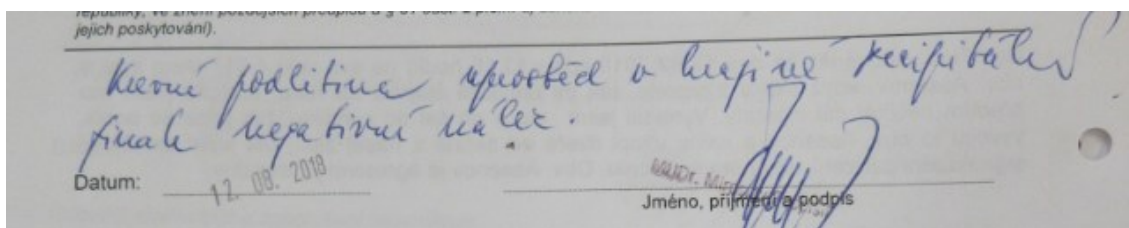 jejich poskytování).
Krevní podlitina uprostřed v krajině
finak negativní nález.
Datum: 12. 08. 2018
MUDr.
Jméno, příjmení a podpis